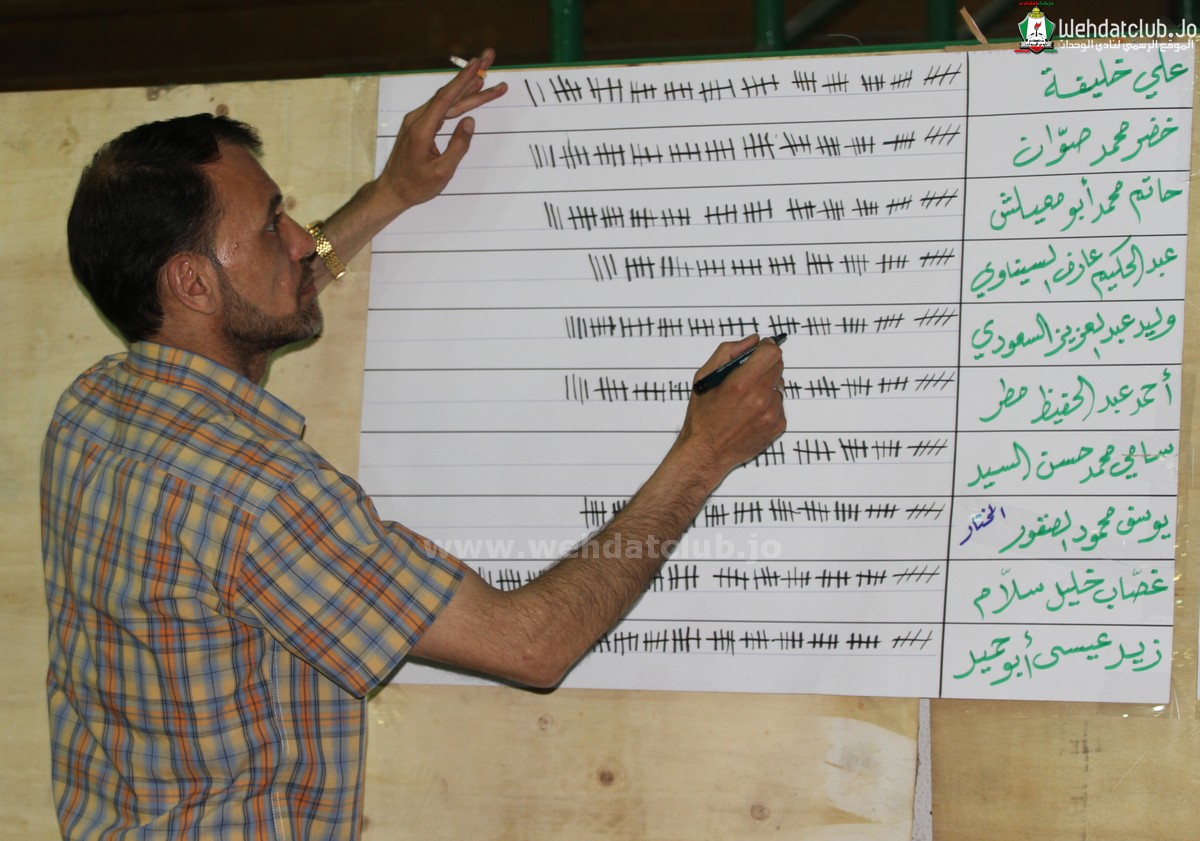 Wehdatclub.Jo
الموقع الرسمي لنادي الوحدات
علي خليفة
خضر محمد صوّان
حاتم محمد أبو معيلش
عبد الحكيم عارف السيناوي
وليد عبد العزيز السعودي
أحمد عبد الحفيظ مطر
سامي محمد حسن السيد
يوسف محمود الصقور المختار
غصّاب خليل سلّام
زيد عيسى أبو حميد
www.wehdatclub.jo